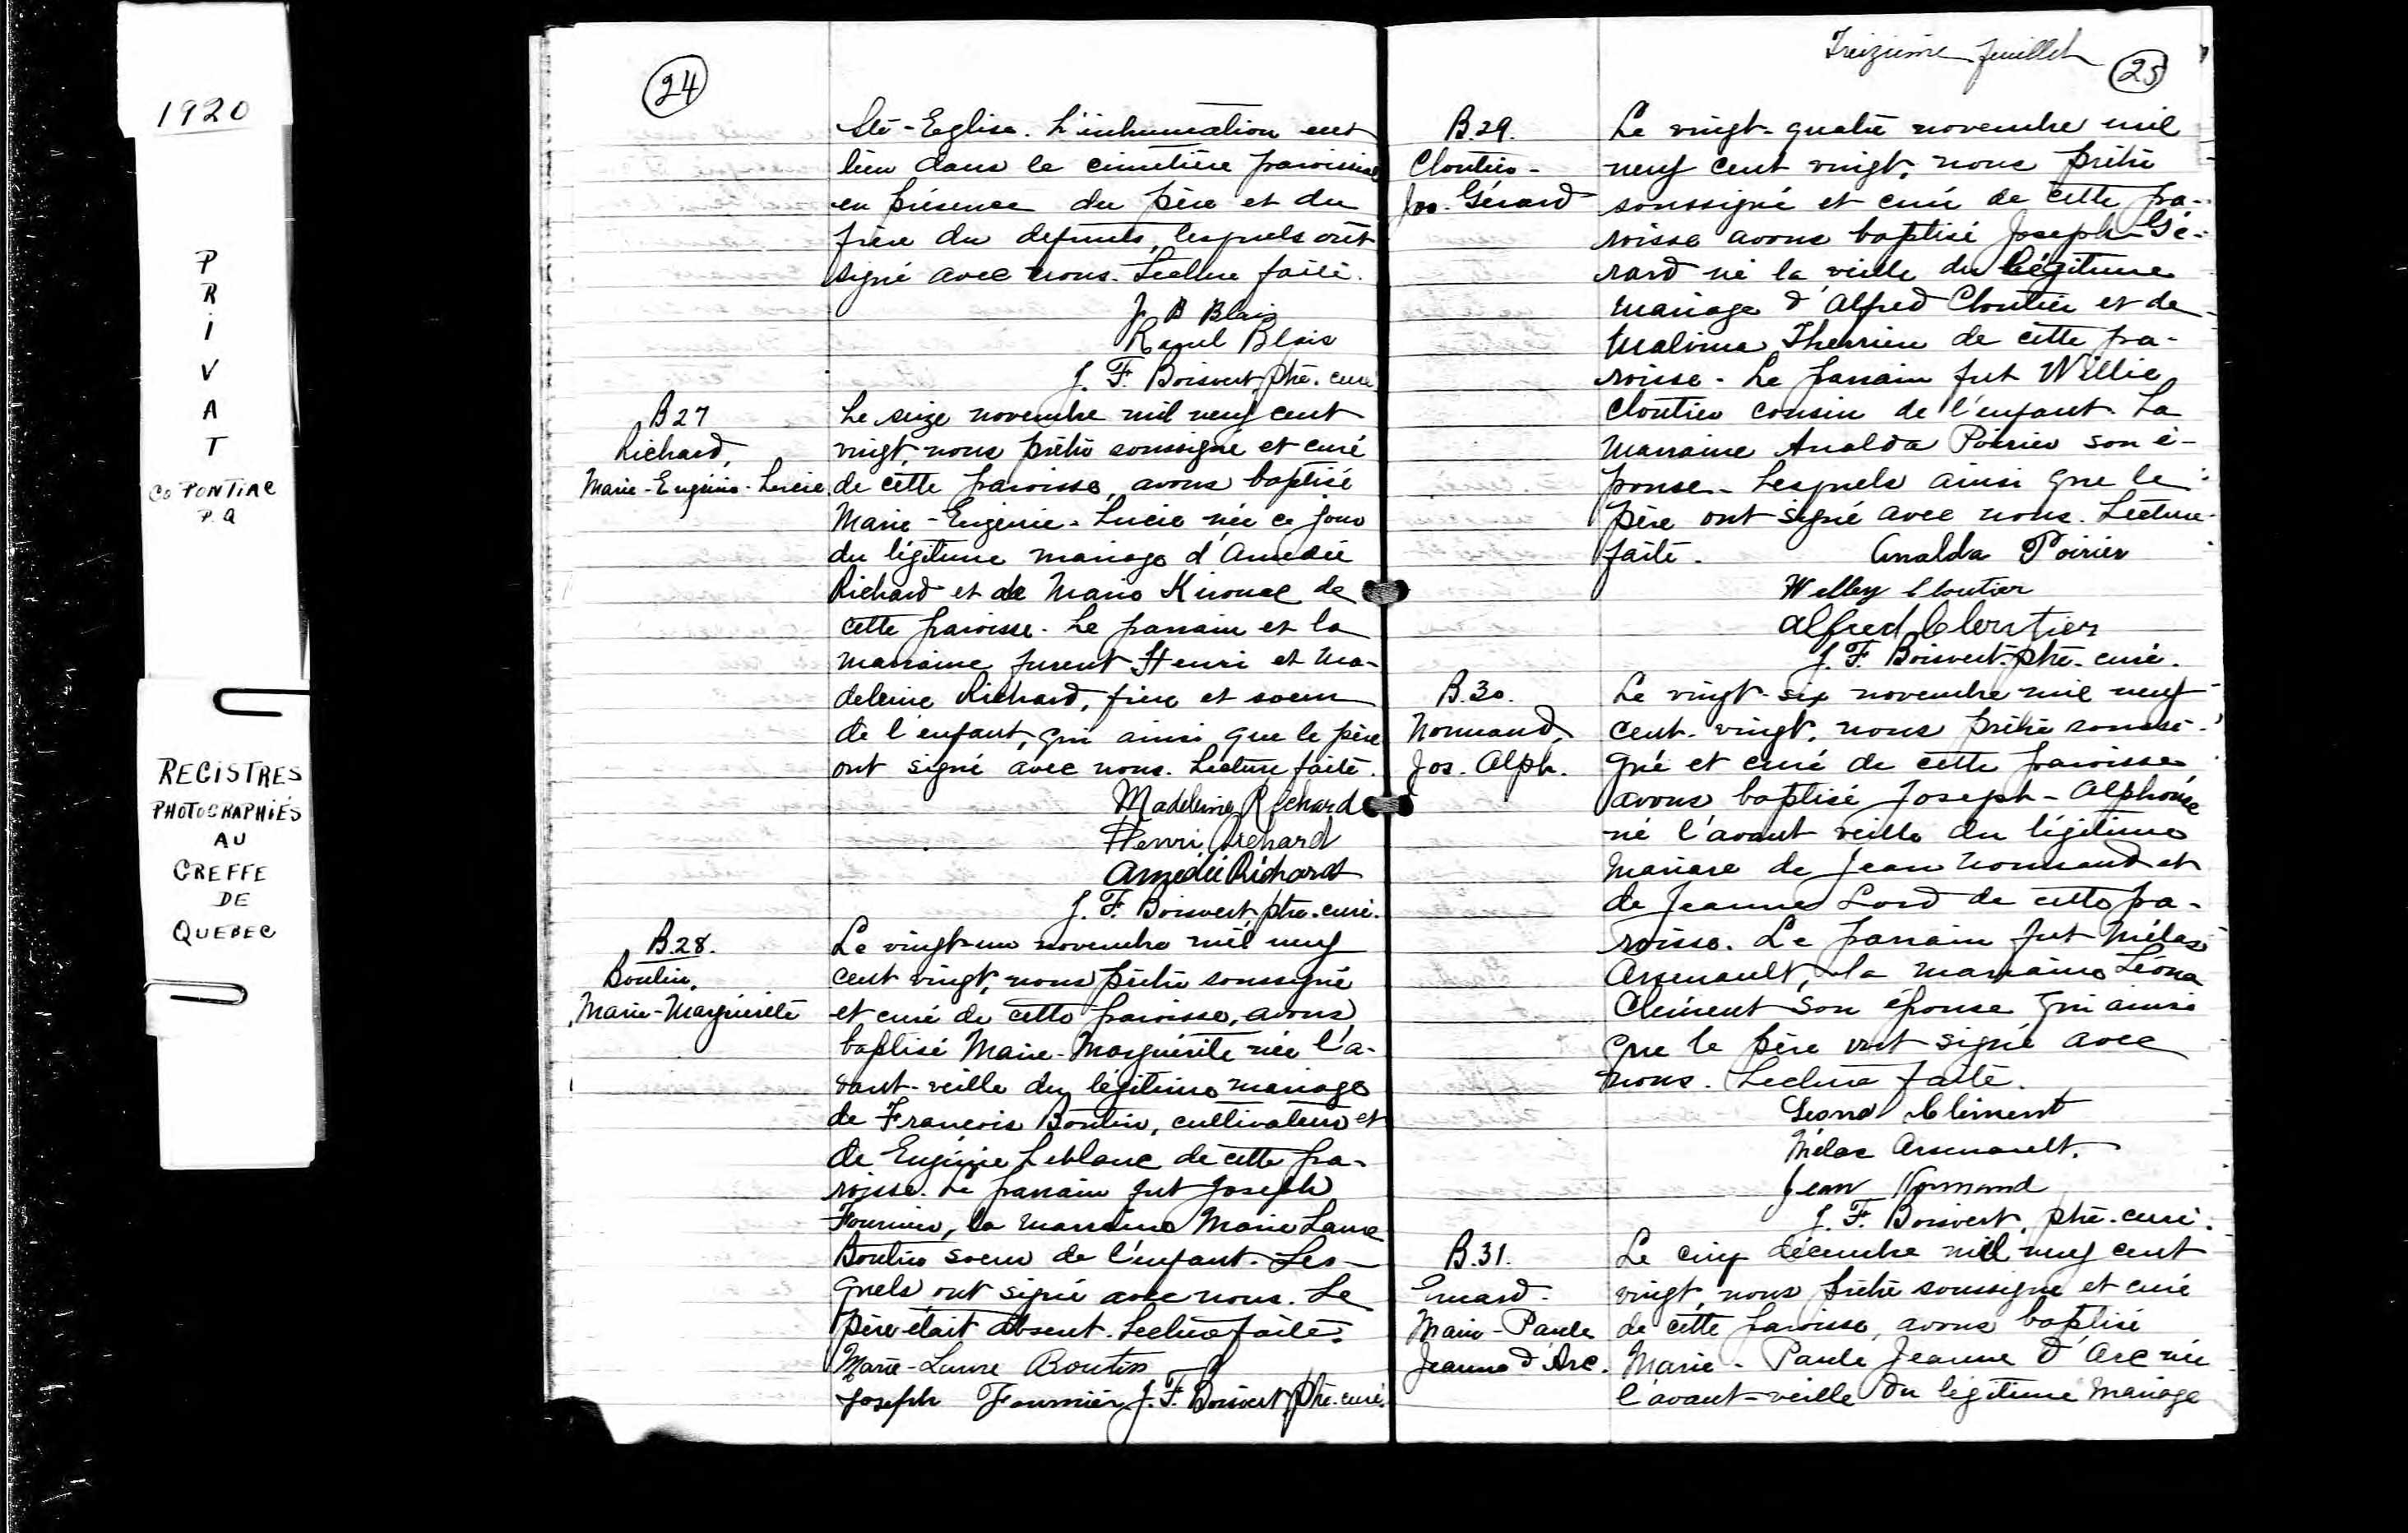 1920
P
R
I
V
A
T
Co PONTIAC
P.Q
REGISTRES
PHOTOGRAPHIÉS
AU
GREFFE
DE
QUEBEC
24
Ste-Eglise. L'inhumation eut
lieu dans le cimetière paroissial
en présence du père et du
frère du defunts, lesquels ont
signé avec nous. Lecture faite.
J B Blais
Raoul Blais
J. F. Boisvert, ptre. curé
B27
Richard,
Marie-Eugénie-Lucie
Le seize novembre mil neuf cent
vingt, nous prêtre soussigné et curé
de cette paroisse, avons baptisé
Marie-Eugénie-Lucie née ce jour
du légitime mariage d'Amedée
Richard et de Marie Kirouac de
cette paroisse. Le parrain et la
marraine furent Henri et Ma-
deleine Richard, frère et soeur
de l'enfant, qui ainsi que le père
ont signé avec nous. Lecture faite.
Madeleine Richard
Henri Richard
Amedée Richard
J. F. Boisvert, ptre. curé.
B.28.
Boutin,
Marie-Marguérite
Le vingt-un novembre mil neuf
cent vingt, nous prêtre soussigné
et curé de cette paroisse, avons
baptisé Marie-Marguérite née l'a-
vant-veille du légitime mariage
de François Boutin, cultivateur et
de Eugénie Leblanc de cette pa-
roisse. Le parrain fut Joseph
Fournier, la marraine Marie Laure
Boutin soeur de l'enfant. Les-
quels ont signé avec nous. Le
père était absent. Lecture faite.
Marie-Laure Boutin
Joseph Fournier J. F. Boisvert, ptre. curé.
Treizième feuillet
25
B.29.
Cloutier-
Jos. Gérard
Le vingt-quatre novembre mil
neuf cent vingt, nous prêtre
soussigné et curé de cette pa-
roisse avons baptisé Joseph-Gé-
rard né la veille du légitime
mariage d'Alfred Cloutier et de
Malvina Therrien de cette pa-
roisse. Le parrain fut Willie
Cloutier cousin de l'enfant. La
marraine Analda Poirier son é-
pouse. Lesquels ainsi que le
père ont signé avec nous. Lecture
faite. Analda Poirier
Welley Cloutier
Alfred Cloutier
J. F. Boisvert. ptre. curé.
B.30.
Normand,
Jos. Alph.
Le vingt-six novembre mil neuf
cent-vingt, nous prêtre soussi-
gné et curé de cette paroisse
avons baptisé Joseph-Alphonse
né l'avant veille du légitime
mariage de Jean Normand et
de Jeanne Lord de cette pa-
roisse. Le parrain fut Mélas
Arsenault, la marraine Léona
Clément son épouse qui ainsi
que le père ont signé avec
nous. Lecture faite.
Leona Clément
Mélas Arsenault.
Jean Normand
J. F. Boisvert, ptre. curé.
B.31.
Emard.
Marie-Paule
Jeanne d'Arc.
Le cinq décembre mil neuf cent
vingt, nous prêtre soussigné et curé
de cette paroisse, avons baptisé
Marie-Paule Jeanne d'Arc née
l'avant-veille du légitime mariage